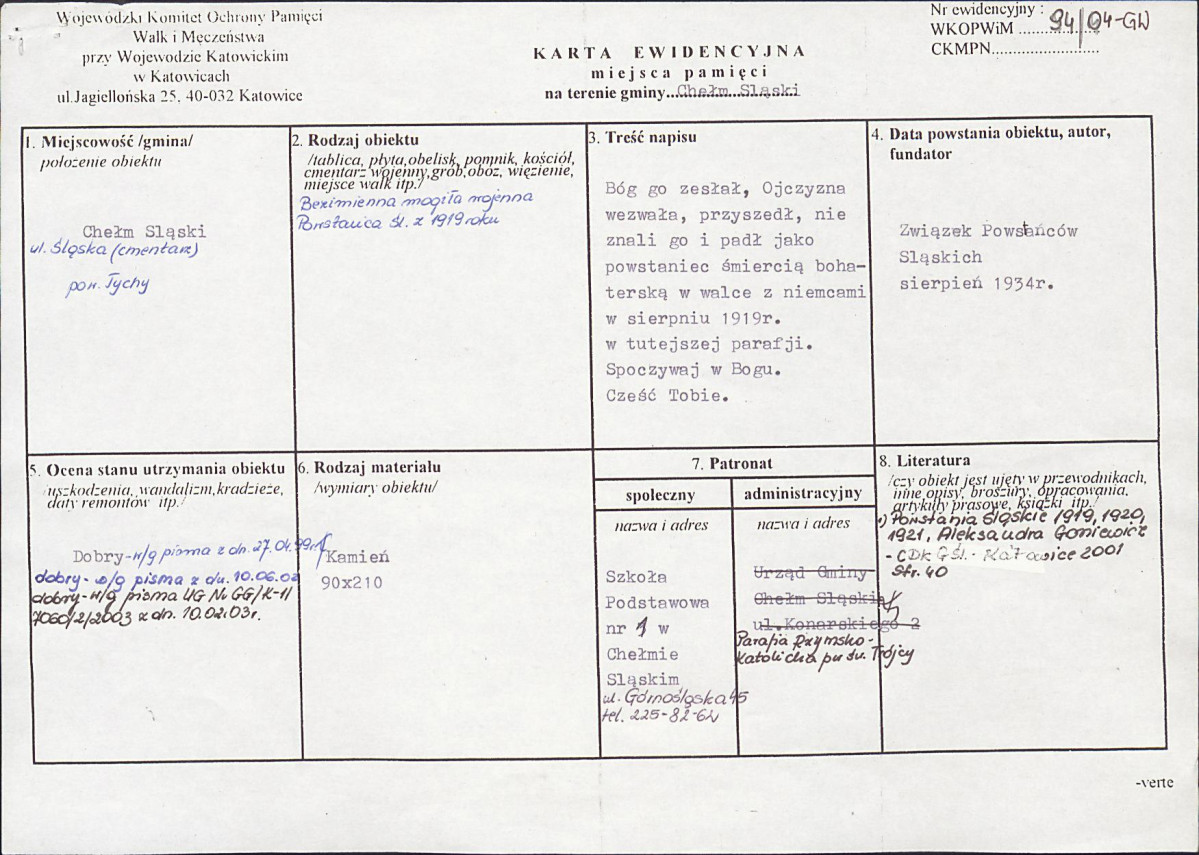 Wojewódzki Komitet Ochrony Pamięci
Walk i Męczeństwa
przy Wojewodzie Katowickim
w Katowicach
ul.Jagiellońska 25, 40-032 Katowice
KARTA EWIDENCYJNA
miejsca pamięci
na terenie gminy...Chełm Sląski
Nr ewidencyjny :
WKOPWiM ...94/04-GW
CKMPN...........................
1. Miejscowość /gmina/
położenie obiektu
Chełm Sląski
ul. Śląska (cmentarz)
pow. Tychy
2. Rodzaj obiektu
/tablica, płyta,obelisk, pomnik, kościół,
cmentarz wojenny,grób,obóz, więzienie,
miejsce walk itp./
Bezimienna mogiła wojenna
Powstańca Śl. z 1919 roku
3. Treść napisu
Bóg go zesłał, Ojczyzna
wezwała, przyszedł, nie
znali go i padł jako
powstaniec śmiercią boha-
terską w walce z niemcami
w sierpniu 1919r.
w tutejszej parafji.
Spoczywaj w Bogu.
Cześć Tobie.
4. Data powstania obiektu, autor,
fundator
Związek Powstańców
Sląskich
sierpień 1934r.
5. Ocena stanu utrzymania obiektu
/uszkodzenia, wandalizm,kradzieże,
daty remontów itp./
Dobry-w/g pisma z dn. 27.04.99r.
dobry- w/g pisma z dn. 10.06.02
dobry-w/g pisma UG Nr GG/K-1/
7060/2/2003 z dn. 10.02.03r.
6. Rodzaj materiału
/wymiary obiektu/
Kamień
90x210
7. Patronat
społeczny
nazwa i adres
Szkoła
Podstawowa
nr 1 w
Chełmie
Sląskim
ul. Górnośląska 45
tel. 225-82-62
administracyjny
nazwa i adres
Urząd Gminy
Chełm Sląski
ul.Konarskiego 2
Parafia Rzymsko-
katolicka pw św. Trójcy
8. Literatura
/czy obiekt jest ujęty w przewodnikach,
inne opisy, broszury, opracowania,
artykuły prasowe, książki itp./
1) Powstania Śląskie 1919, 1920,
1921, Aleksandra Goniewicz
- CDK GŚl. - Katowice 2001
str. 40
-verte